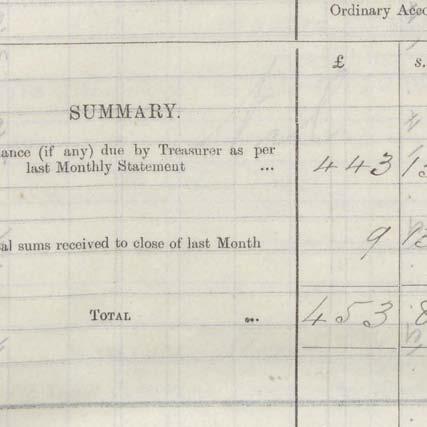 Ordinary Acco
£ s.
SUMMARY.
ance (if any) due by Treasurer as per
last Monthly Statement ... 443 13
al sums received to close of last Month 9 13
TOTAL ... 453 8